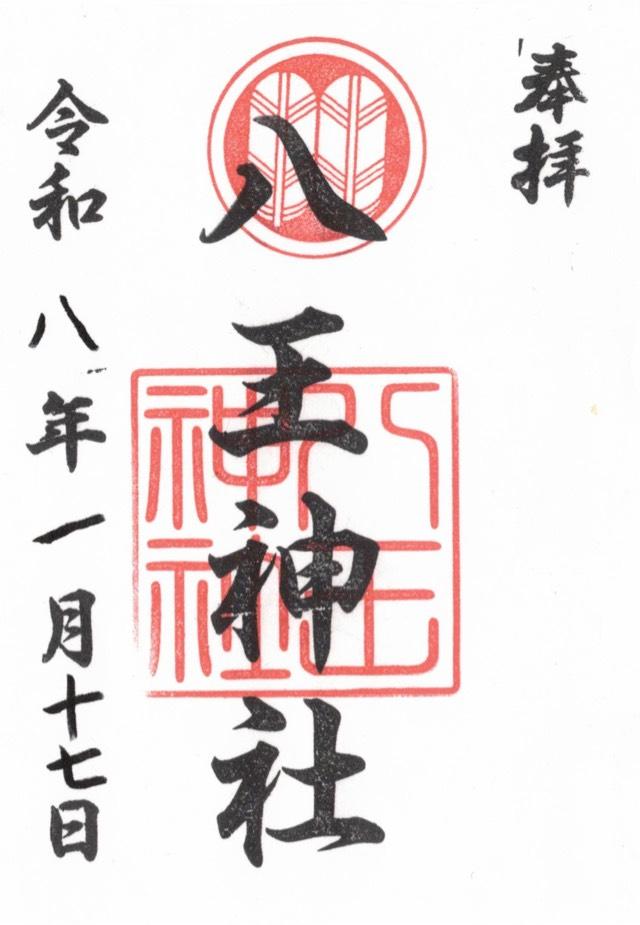 奉拝
八王神社
八王神社
令和八年一月十七日